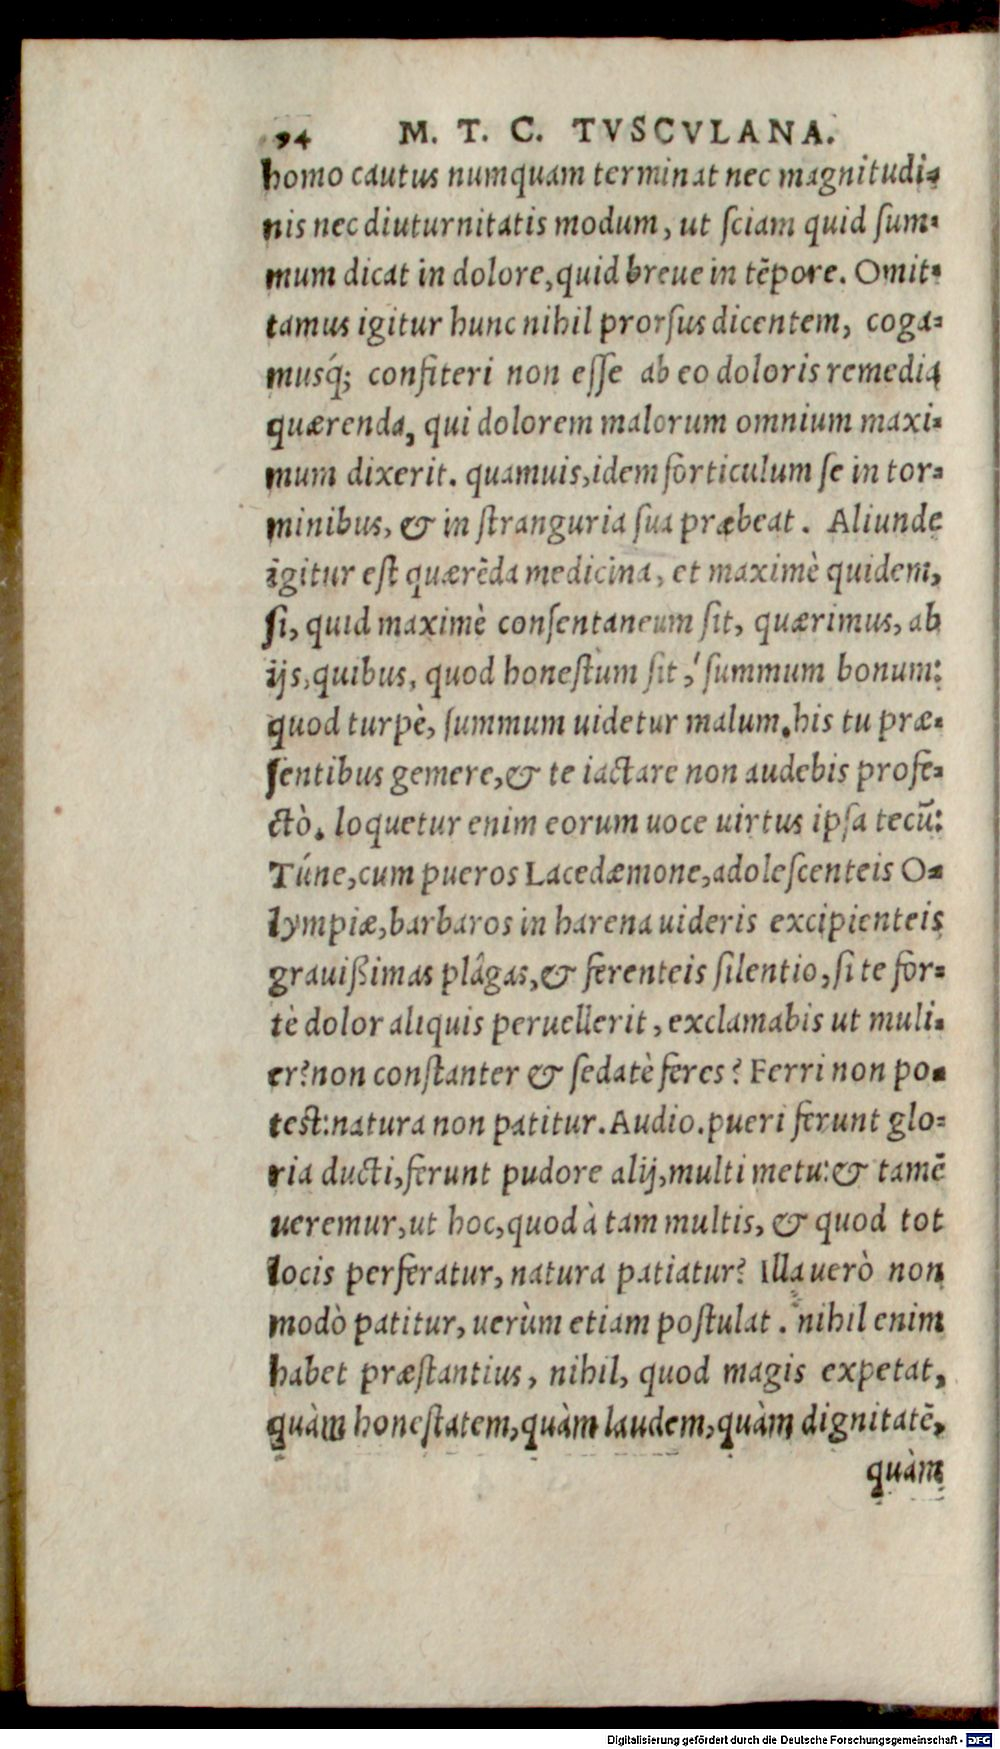 94 M. T. C. TVSCVLANA.
homo cautus numquam terminat nec magnitudi-
nis nec diuturnitatis modum, ut ſciam quid ſum-
mum dicat in dolore, quid breue in tēpore. Omit-
tamus igitur hunc nihil prorſus dicentem, coga-
musq́; confiteri non eſſe ab eo doloris remedia
quærenda, qui dolorem malorum omnium maxi-
mum dixerit. quamuis, idem forticulum ſe in tor-
minibus, & in ſtranguria ſua præbeat. Aliunde
igitur eſt quærēda medicina, et maximè quidem,
ſi, quid maximè conſentaneum ſit, quærimus, ab
ijs, quibus, quod honeſtum ſit, ſummum bonum:
quod turpè, ſummum uidetur malum. his tu præ-
ſentibus gemere, & te iactare non audebis profe-
ctò. loquetur enim eorum uoce uirtus ipſa tecū:
Túne, cum pueros Lacedæmone, adoleſcenteis O-
lympiæ, barbaros in harena uideris excipienteis
grauißimas plâgas, & ferenteis ſilentio, ſi te for-
tè dolor aliquis peruellerit, exclamabis ut muli-
er? non conſtanter & ſedatè feres? Ferri non po-
test: natura non patitur. Audio. pueri ferunt glo-
ria ducti, ferunt pudore alij, multi metu: & tamē
ueremur, ut hoc, quod à tam multis, & quod tot
locis perferatur, natura patiatur? Illa uerò non
modò patitur, uerùm etiam poſtulat. nihil enim
habet præſtantius, nihil, quod magis expetat,
quàm honeſtatem, quàm laudem, quàm dignitatē,
quàm
Digitalisierung gefördert durch die Deutsche Forschungsgemeinschaft - DFG